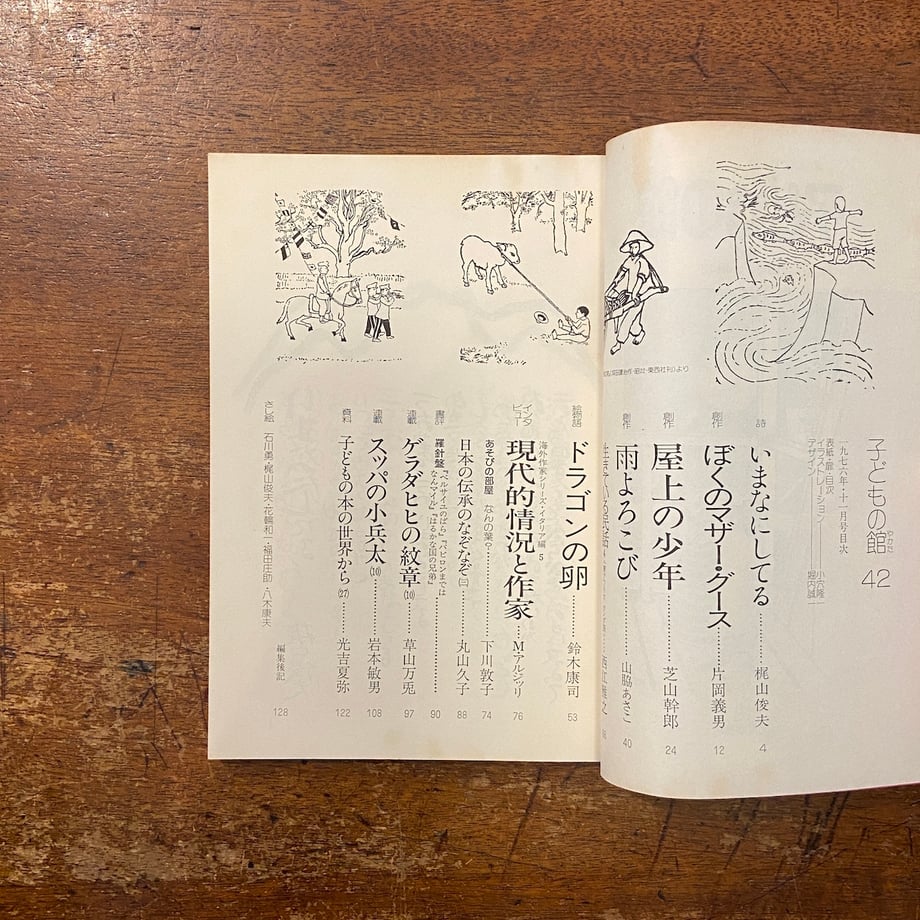 子どもの館 42
やかた
一九七六年・十一月号目次
表紙・扉・目次
イラストレーション 小穴隆一
デザイン 堀内誠一
詩 いまなにしてる 梶山俊夫 4
創作 ぼくのマザー・グース 片岡義男 12
創作 屋上の少年 芝山幹郎 24
創作 雨よろこび 山脇あさこ 40
東西社刊)より
絵物語 ドラゴンの卵 鈴木康司 53
海外作家シリーズ・イタリア編 5
インタビュー 現代的情況と作家 M・アルジッリ 76
あそびの部屋 なんの葉? 下川敦子 74
日本の伝承のなぞなぞ(二) 丸山久子 88
書評 羅針盤『ベルサイユのばら』『バビロンまでは
なんマイル』『はるかな国の兄弟』 90
連載 ゲラダヒヒの紋章(10) 草山万兎 97
連載 スッパの小兵太(10) 岩本敏男 108
資料 子どもの本の世界から(27) 光吉夏弥 122
編集後記 128
さし絵 石川勇・梶山俊夫・花輪和一・福田庄助・八木康夫